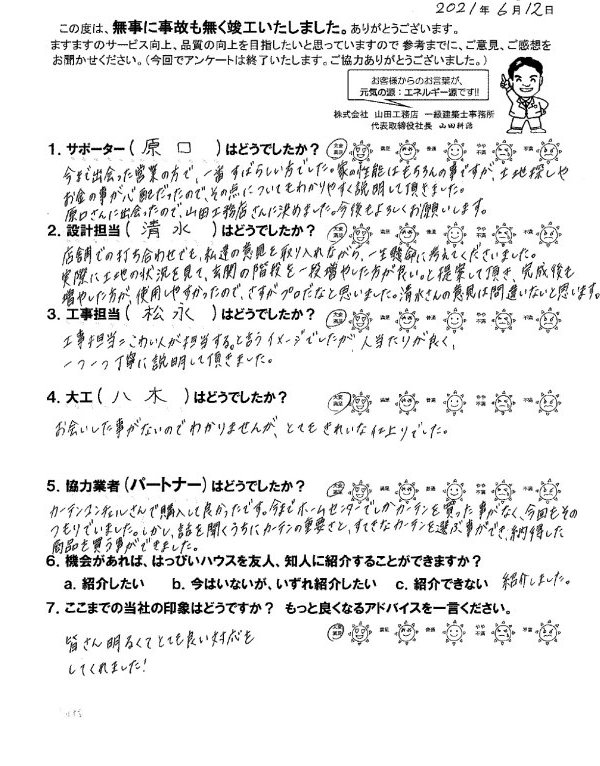 2021年 6月12日
この度は、無事に事故も無く竣工いたしました。ありがとうございます。
ますますのサービス向上、品質の向上を目指したいと思っていますので 参考までに、ご意見、ご感想を
お聞かせください。（今回でアンケートは終了いたします。ご協力ありがとうございました。）
お客様からのお言葉が、
元気の源：エネルギー源です!!
株式会社 山田工務店 一級建築士事務所
代表取締役社長 山田耕治
1. サポーター（ 原口 ）はどうでしたか？ 大変満足 満足 普通 やや不満 不満
今まで出会った営業の方で、一番すばらしい方でした。家の性能はもちろんの事ですが、土地探しや
お金の事が心配だったので、その点についてもわかりやすく説明して頂きました。
原口さんに出会ったので、山田工務店さんに決めました。今後もよろしくお願いします。
2. 設計担当（ 清水 ）はどうでしたか？ 大変満足 満足 普通 やや不満 不満
店舗での打ち合わせでも、私達の意見を取り入れながら、一生懸命に考えてくださいました。
実際に土地の状況を見て、玄関の階段を一段増やした方が良い。と提案して頂き、完成後も
増やした方が、使用しやすかったので、さすがプロだなと思いました。清水さんの意見は間違いないと思います。
3. 工事担当（ 松永 ）はどうでしたか？ 大変満足 満足 普通 やや不満 不満
工事担当=こわい人が担当する。と言うイメージでしたが、人当たりが良く、
一つ一つ丁寧に説明して頂きました。
4. 大工（ 八木 ）はどうでしたか？ 大変満足 満足 普通 やや不満 不満
お会いした事がないのでわかりませんが、とてもきれいな仕上りでした。
5. 協力業者（パートナー）はどうでしたか？ 大変満足 満足 普通 やや不満 不満
カーテンコンシェルさんで購入して良かったです。今までホームセンターでしかカーテンを買った事がなく、今回もその
つもりでいました。しかし、話を聞くうちにカーテンの重要さと、すてきなカーテンを選ぶ事ができ、納得した
商品を買う事ができました。
6. 機会があれば、はっぴいハウスを友人、知人に紹介することができますか？
a. 紹介したい b. 今はいないが、いずれ紹介したい c. 紹介できない 紹介しました。
7. ここまでの当社の印象はどうですか？ もっと良くなるアドバイスを一言ください。
大変満足 満足 普通 やや不満 不満
皆さん明るくてとても良い対応を
してくれました!